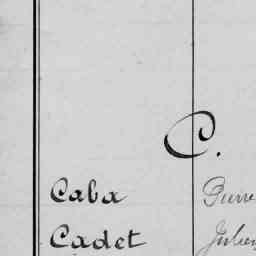 C.
Caba Pierre
Cadet Julien